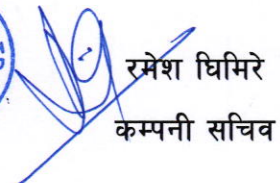 रमेश घिमिरे
कम्पनी सचिव